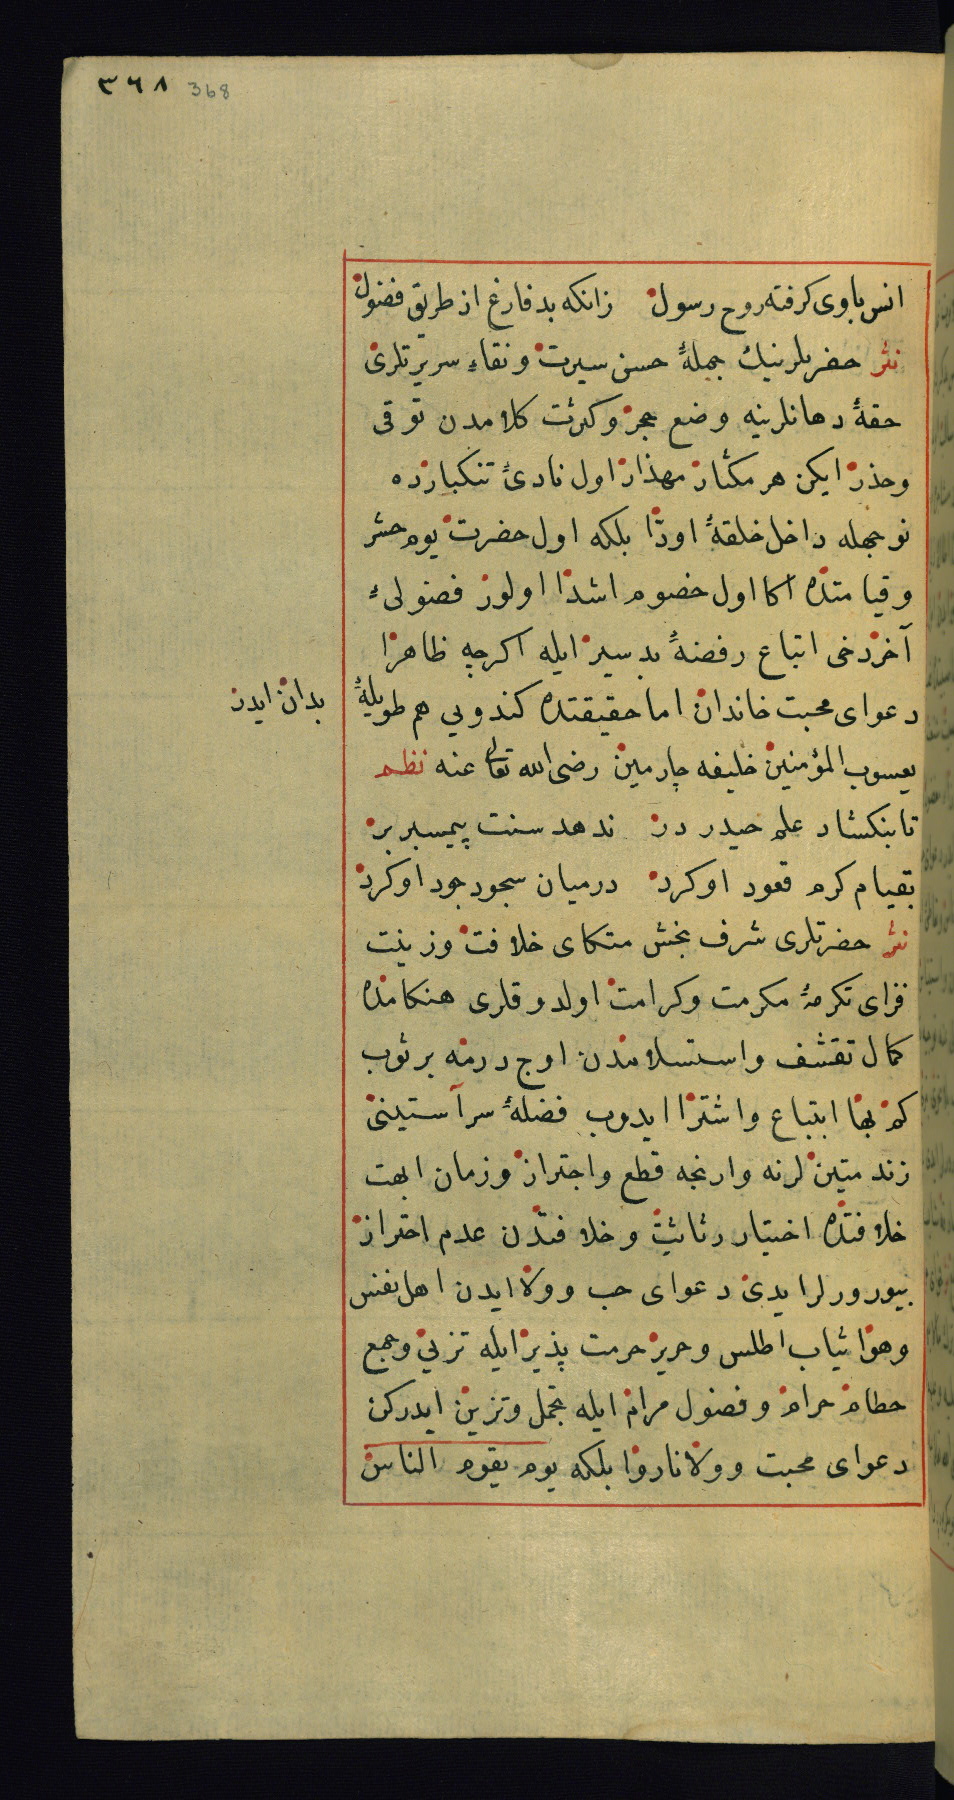 ٣٦٨ 368
انس باوی کرفته روح رسول زانکه بد فارغ از طریق فضول
نثر حضرتلرینک جملهٔ حسن سیرت و نقاء سریرتلری
حقهٔ دهانلرینه وضع حجر و کثرت کلامدن توقی
وحذر ایکن هر مکثار مهذار اول نادئ تنکبارده
نوجهله داخل خلقهٔ اودا بلکه اول حضرت یوم حشر
وقیامتده اکا اول خصوم اشدا اولور فضولیء
آخر دخی اتباع رفضهٔ بد سیر ایله اکرچه ظاهرا
دعوای محبت خاندان اما حقیقتده کندویی هم طویلهٔ
بدان ایدر
یعسوب المؤمنین خلیفه چارمین رضی الله تعالی عنه نظم
تا بنکشاد علم حیدر در ندهد سنت پیمبر بر
بقیام کرم قعود او کرد درمیان سجود جود او کرد
نثر حضرتلری شرف بخش متکای خلافت وزینت
فزای تکرمهٔ مکرمت وکرامت اولدوقلری هنکامده
کمال تقشف واستسلامدن اوج درمه بر ثوب
کم بها ابتیاع واشترا ایدوب فضلهٔ سرآستینی
زند متین لرنه وارنجه قطع واجتراز وزمان ابهت
خلافتده اختیار رثاثیت وخلافتدن عدم احتراز
بیوررلر ایدی دعوای حب وولا ایدن اهل نفس
وهوا ثیاب اطلس وحریر حرمت پذیر ایله تزیی وجمع
حطام حرام وفضول مرام ایله تجمل وتزین ایدرکن
دعوای محبت وولا ناروا بلکه یوم یقوم الناس